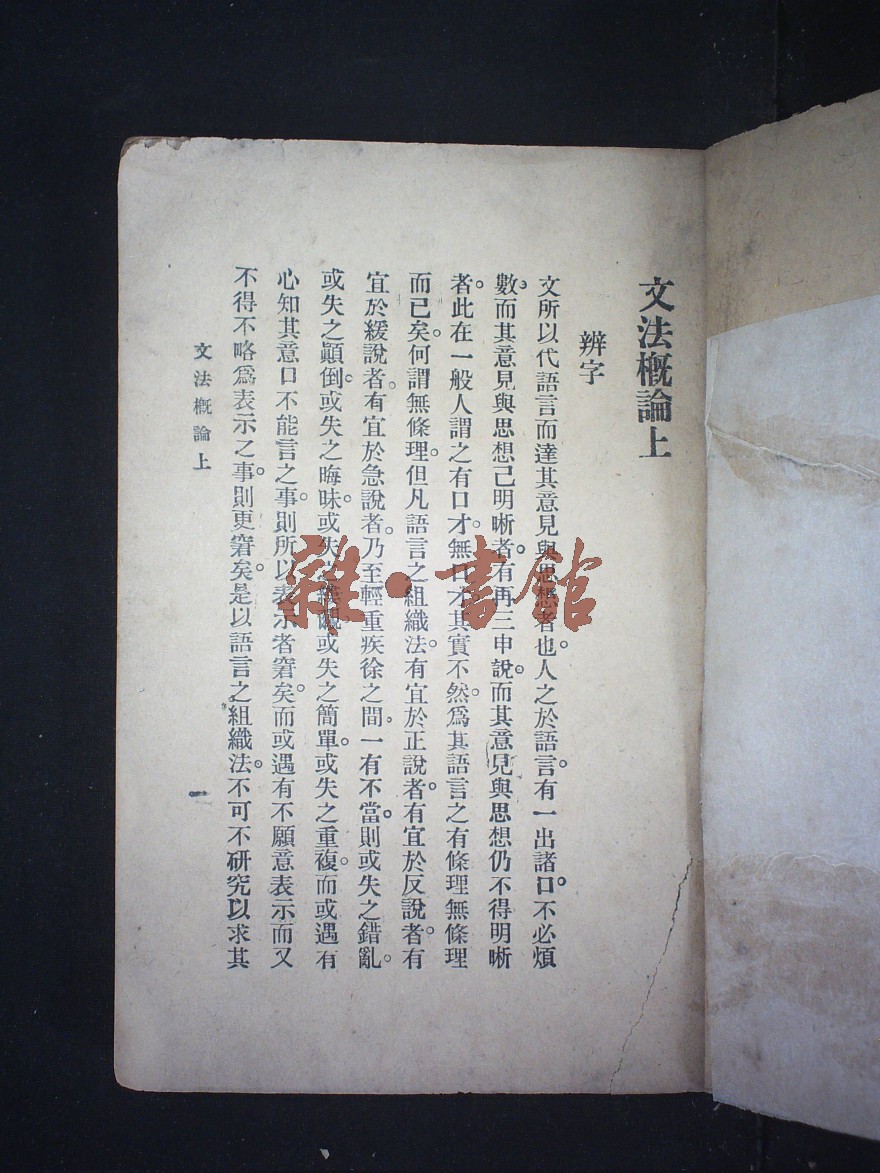 文法槪論上
辨字
文所以代語言而達其意見與思想者也。人之於語言。有一出諸口。不必煩
數。而其意見與思想已明晰者。有再三申說。而其意見與思想仍不得明晰
者。此在一般人謂之有口才。無口才。其實不然。爲其語言之有條理無條理
而已矣。何謂無條理。但凡語言之組織法。有宜於正說者。有宜於反說者。有
宜於緩說者。有宜於急說者。乃至輕重疾徐之間。一有不當。則或失之錯亂。
或失之顚倒。或失之晦昧。或失之 或失之簡單。或失之重複。而或遇有
心知其意口不能言之事。則所以表示者窘矣。而或遇有不願意表示而又
不得不略爲表示之事。則更窘矣。是以語言之組織法。不可不研究以求其
文法槪論上
一
雜·書館